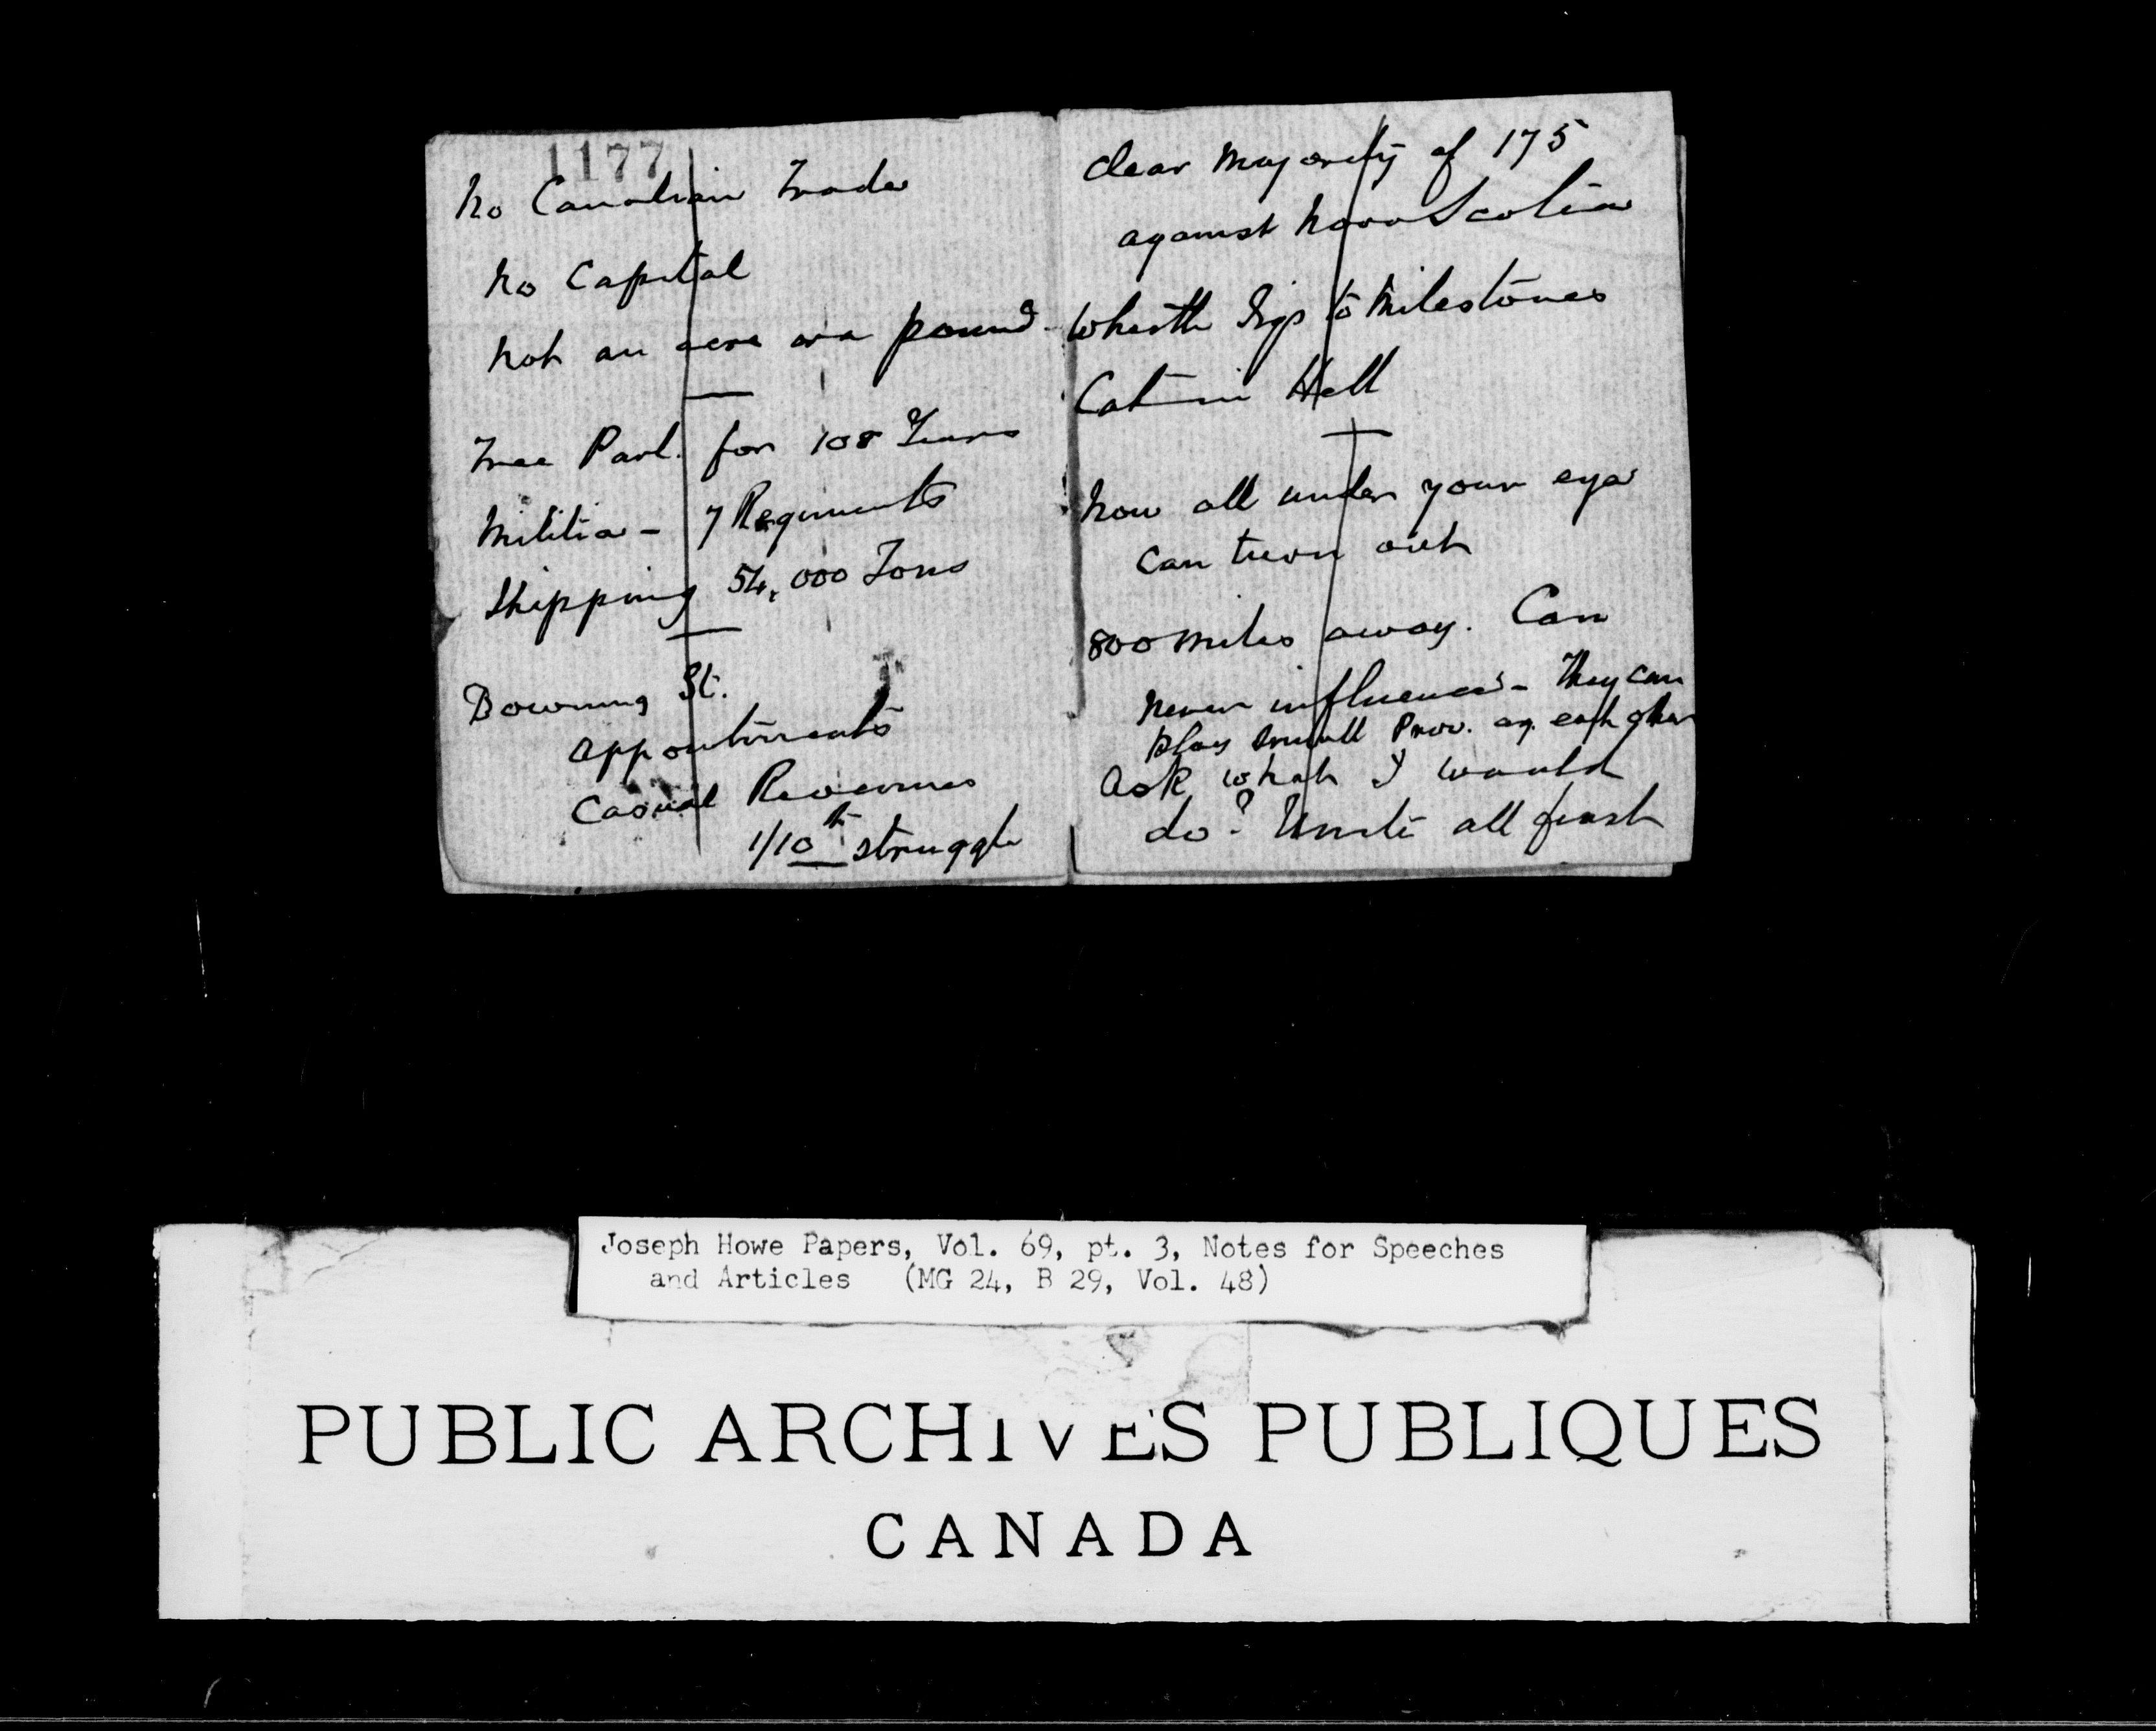 1177
No Canadian Trade
No Capital
Not an acre or a pound
Free Parl. for 108 Years
Militia - 7 Regiments
Shipping 54,000 Tons
Downing St.
appointments
Casual Revenues
1/10th struggle
Clear majority of 175
against Nova Scotia
Whistle Jigs to Milestones
Cat in Hell
Now all under your eye
can turn out
800 miles away. Can
never influence - They can
play small Prov. ag. each other
Ask what I would
do? Unite all first
Joseph Howe Papers, Vol. 69, pt. 3, Notes for Speeches
and Articles (MG 24, B 29, Vol. 48)
PUBLIC ARCHIVES PUBLIQUES
CANADA